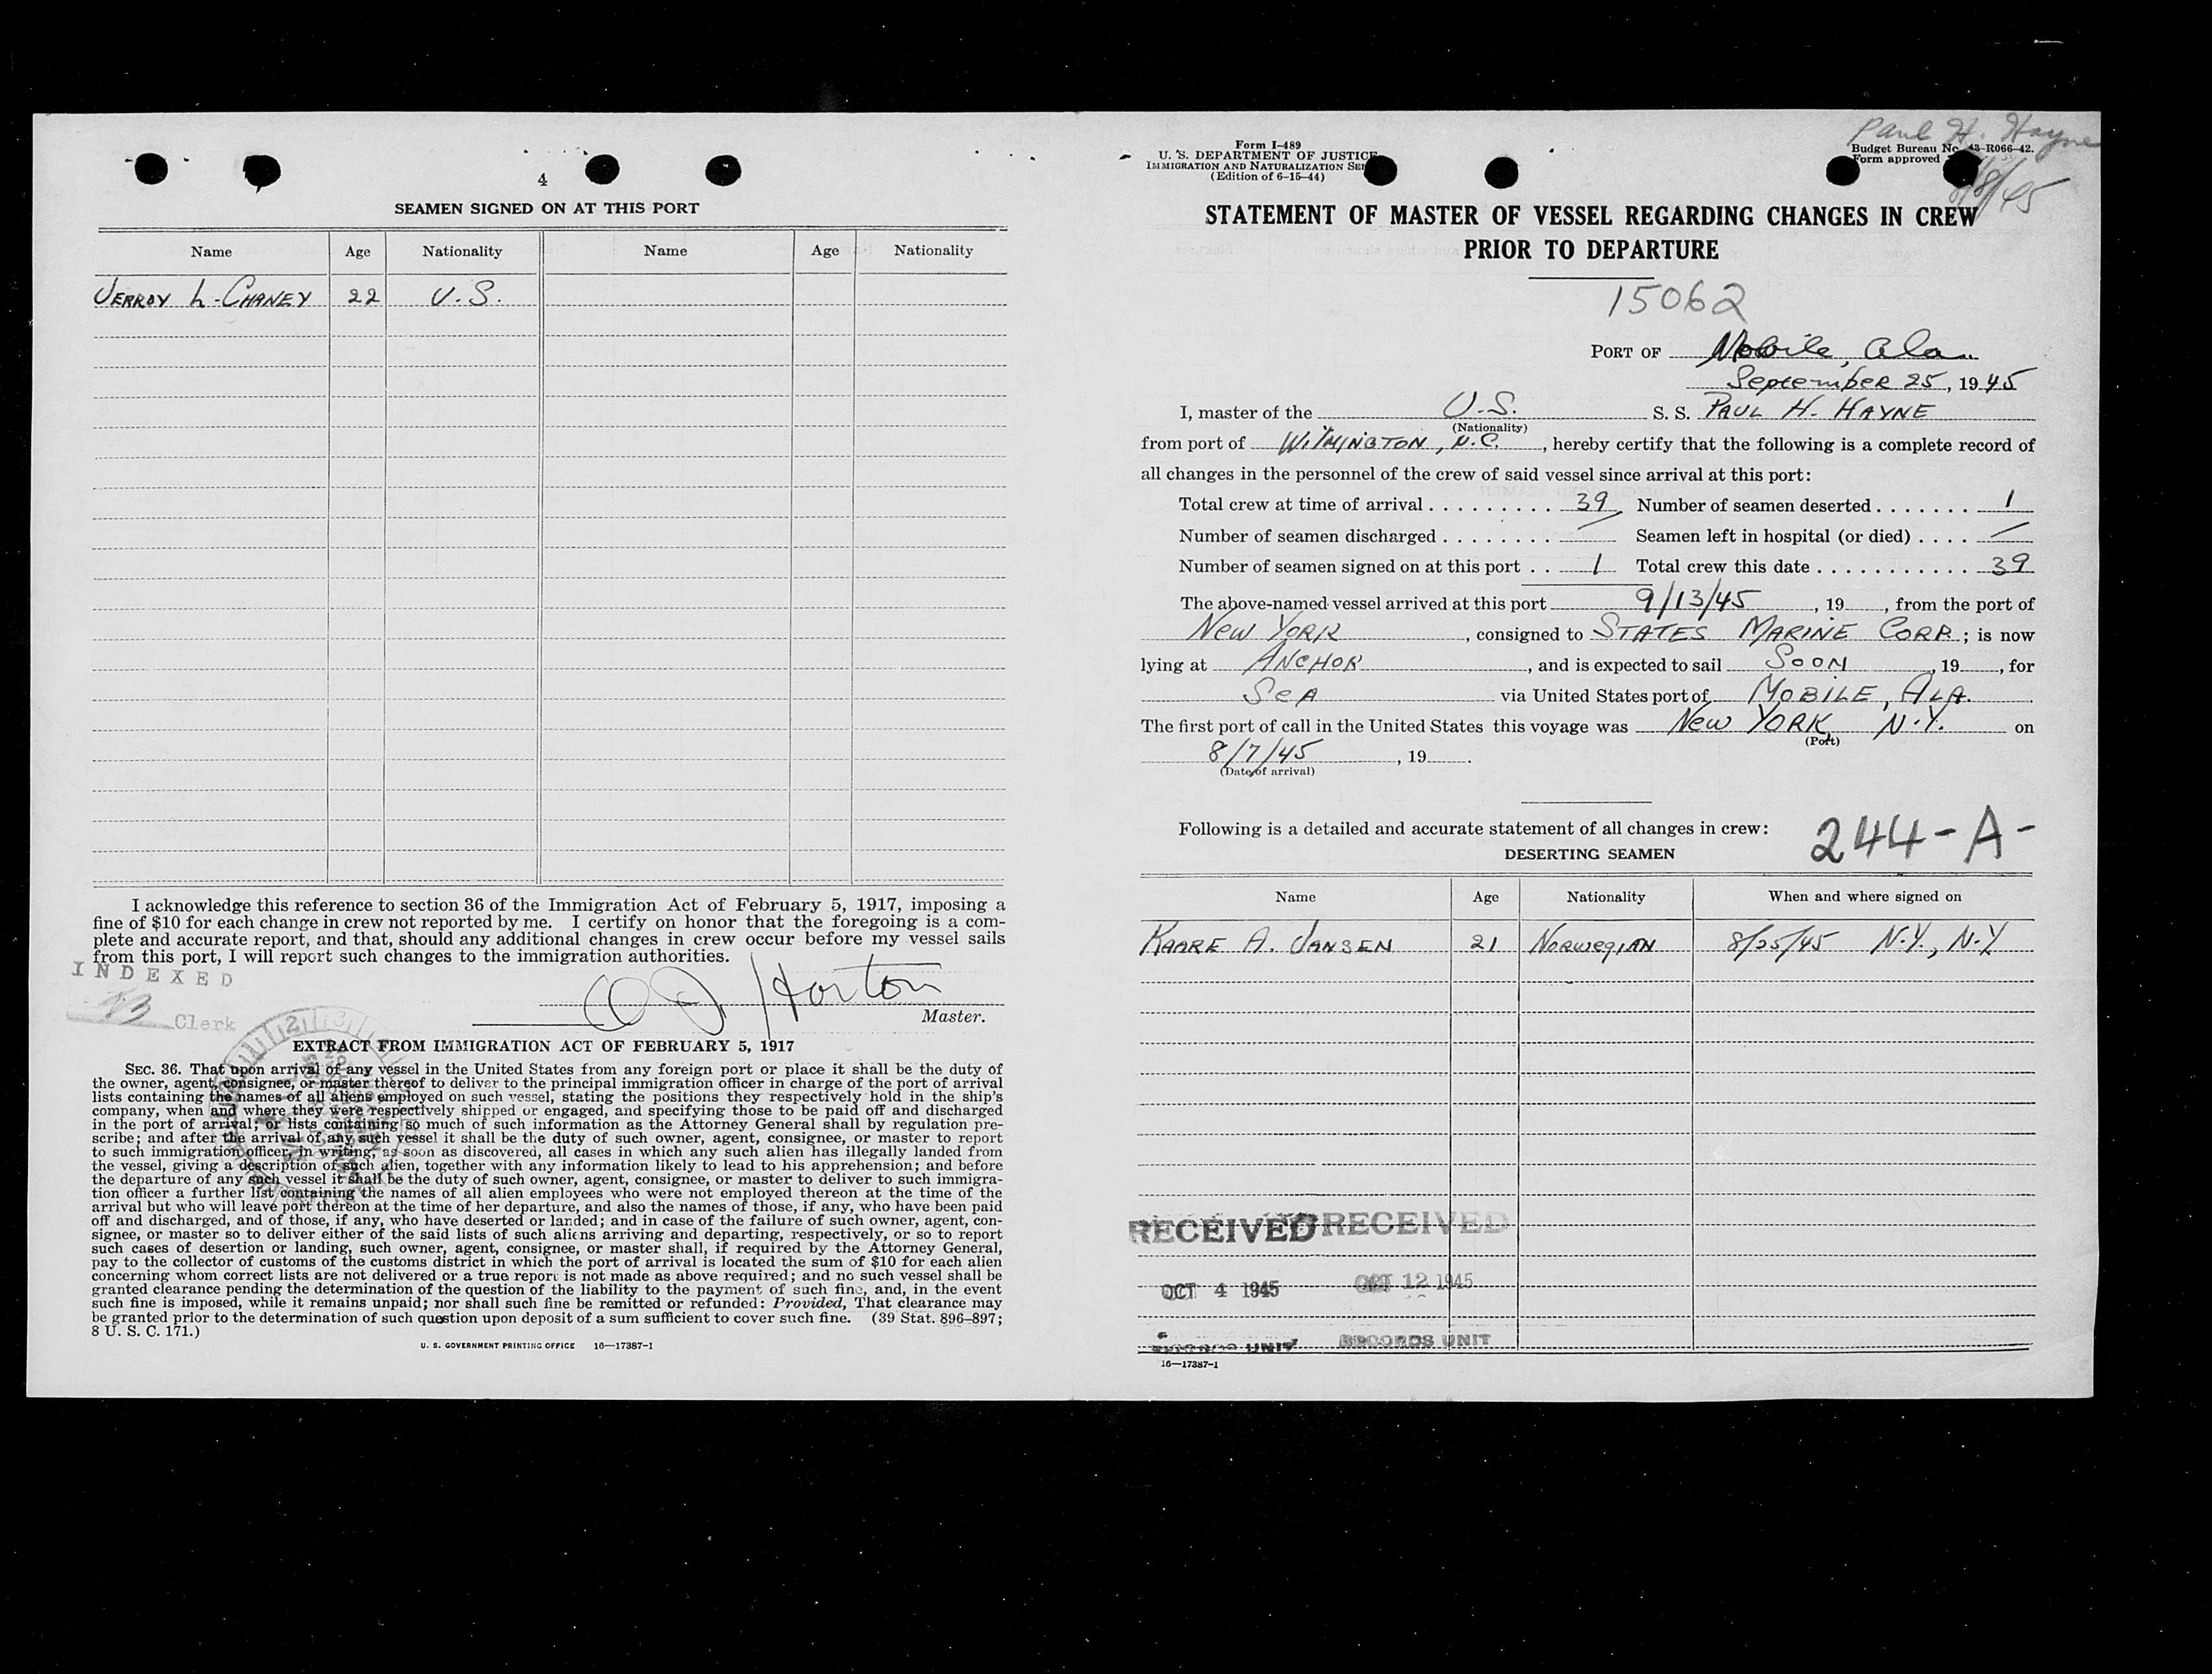 4
SEAMEN SIGNED ON AT THIS PORT
Name Age Nationality Name Age Nationality
JERROY L. CHANEY 22 U.S.
I acknowledge this reference to section 36 of the Immigration Act of February 5, 1917, imposing a
fine of $10 for each change in crew not reported by me. I certify on honor that the foregoing is a com-
plete and accurate report, and that, should any additional changes in crew occur before my vessel sails
from this port, I will report such changes to the immigration authorities.
INDEXED
Clerk
Horton
Master.
EXTRACT FROM IMMIGRATION ACT OF FEBRUARY 5, 1917
SEC. 36. That upon arrival of any vessel in the United States from any foreign port or place it shall be the duty of
the owner, agent, consignee, or master thereof to deliver to the principal immigration officer in charge of the port of arrival
lists containing the names of all aliens employed on such vessel, stating the positions they respectively hold in the ship's
company, when and where they were respectively shipped or engaged, and specifying those to be paid off and discharged
in the port of arrival; or lists containing so much of such information as the Attorney General shall by regulation pre-
scribe; and after the arrival of any such vessel it shall be the duty of such owner, agent, consignee, or master to report
to such immigration officer, in writing, as soon as discovered, all cases in which any such alien has illegally landed from
the vessel, giving a description of such alien, together with any information likely to lead to his apprehension; and before
the departure of any such vessel it shall be the duty of such owner, agent, consignee, or master to deliver to such immigra-
tion officer a further list containing the names of all alien employees who were not employed thereon at the time of the
arrival but who will leave port thereon at the time of her departure, and also the names of those, if any, who have been paid
off and discharged, and of those, if any, who have deserted or landed; and in case of the failure of such owner, agent, con-
signee, or master so to deliver either of the said lists of such aliens arriving and departing, respectively, or so to report
such cases of desertion or landing, such owner, agent, consignee, or master shall, if required by the Attorney General,
pay to the collector of customs of the customs district in which the port of arrival is located the sum of $10 for each alien
concerning whom correct lists are not delivered or a true report is not made as above required; and no such vessel shall be
granted clearance pending the determination of the question of the liability to the payment of such fine, and, in the event
such fine is imposed, while it remains unpaid; nor shall such fine be remitted or refunded: Provided, That clearance may
be granted prior to the determination of such question upon deposit of a sum sufficient to cover such fine. (39 Stat. 896–897;
8 U. S. C. 171.)
U. S. GOVERNMENT PRINTING OFFICE 16—17387-1
Paul H. Hayne
Form I-489
U. S. DEPARTMENT OF JUSTICE
IMMIGRATION AND NATURALIZATION
(Edition of 6-15-44)
Budget Bureau No. 43-R066-42.
Form approved
STATEMENT OF MASTER OF VESSEL REGARDING CHANGES IN CREW
PRIOR TO DEPARTURE
15062
PORT OF Mobile, Ala.
September 25, 1945
I, master of the U.S. S. S. PAUL H. HAYNE
(Nationality)
from port of WILMINGTON, N.C., hereby certify that the following is a complete record of
all changes in the personnel of the crew of said vessel since arrival at this port:
Total crew at time of arrival . . . . . . . . . . 39 Number of seamen deserted . . . . . . . 1
Number of seamen discharged . . . . . . . . / Seamen left in hospital (or died) . . . . /
Number of seamen signed on at this port . . 1 Total crew this date . . . . . . . . . . . . 39
The above-named vessel arrived at this port 9/13/45, 19 , from the port of
NEW YORK, consigned to STATES MARINE CORP.; is now
lying at ANCHOR, and is expected to sail SOON, 19 , for
SEA via United States port of MOBILE, ALA.
The first port of call in the United States this voyage was NEW YORK N.Y. on
(Port)
8/7/45, 19 .
(Date of arrival)
Following is a detailed and accurate statement of all changes in crew: 244-A-
DESERTING SEAMEN
Name Age Nationality When and where signed on
KAARE A. JANSEN 21 NORWEGIAN 8/25/45 N.Y., N.Y
RECEIVED RECEIVED
OCT 4 1945 OCT 12 1945
UNIT RECORDS UNIT
16—17387-1